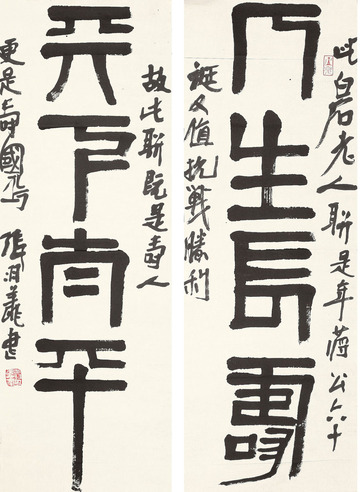 人生長壽
此白石老人聯是年蔣公六十
誕又值抗戰勝利
天下太平
故此聯既是壽人
更是壽國焉 張 書